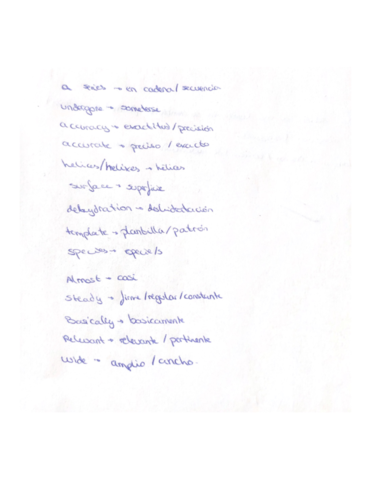 a series → en cadena/secuencia
undergoes → someterse
accuracy → exactitud/precisión
accurate → preciso / exacto
helices/helixes → hélices
surface → superficie
dehydration → deshidratación
template → plantilla/patrón
species → especie/s
Almost → casi
Steady → firme/regular/constante
Basically → basicamente
Relevant → relevante / pertinente
wide → amplio / ancho.